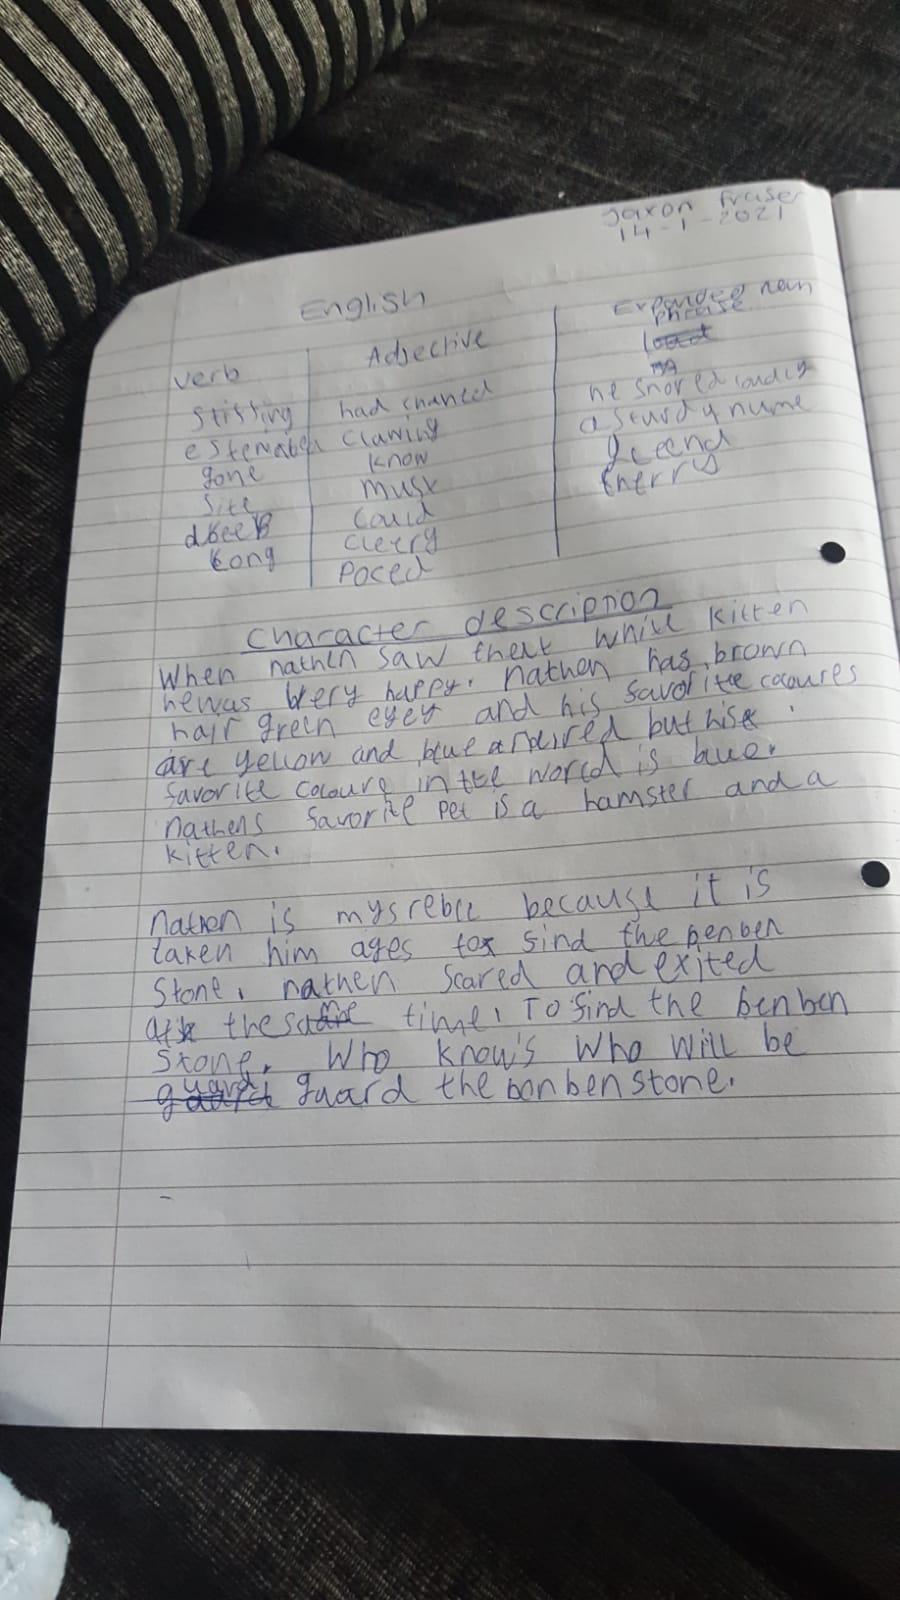 Jaxon Fraser
14-1-2021
English
Expanded noun
phrase
Verb
Adjective
had chanted
he snored loudly
a sturdy nume
clawing
gone
know
Site
musk
Could
Cleery
Poced
Character description
When nathen saw thent white kitten
he was very happy. nathen has brown
hair green eyey and his favorite coloures
are yellow and blue and red but his
favorite coloure in the world is blue.
nathens favorite pet is a hamster and a
kitten.
Nathen is mysreble because it is
taken him ages to find the benben
Stone. nathen scared and exited
at the same time. To find the benben
Stone. Who know's who will be
guard the benben stone.